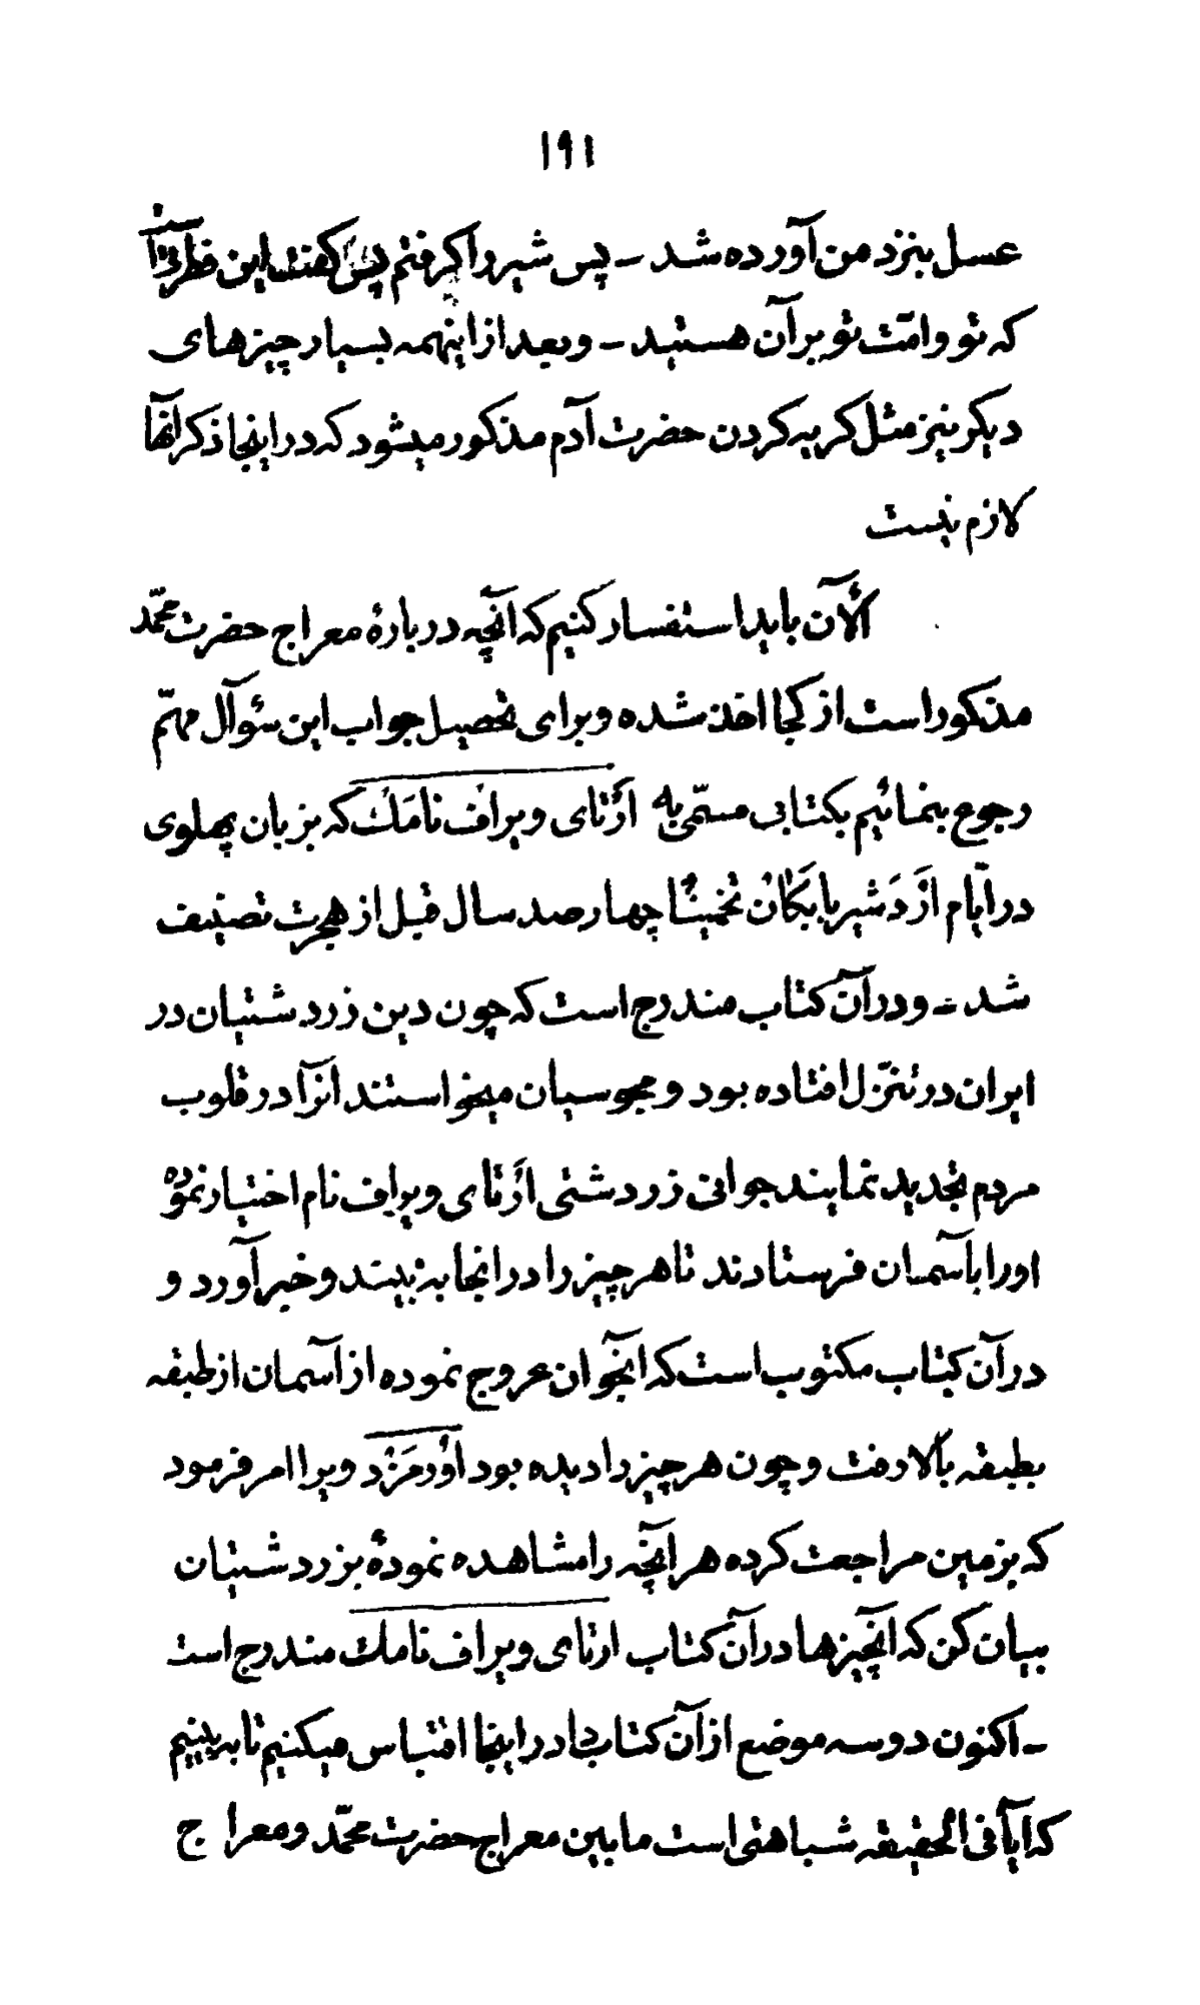 ۱۹۱
عسل بنزد من آورده شد ـ پس شیر را گرفتم پس گفت این فطرتست
که تو و امّت تو بر آن هستید ـ و بعد از اینهمه بسیار چیزهای
دیگر نیز مثل گریه کردن حضرت آدم مذکور میشود که در اینجا ذکر آنها
لازم نیست
الآن باید استفسار کنیم که آنچه دربارهٔ معراج حضرت محمّد
مذکور است از کجا اخذ شده و برای تحصیل جواب این سئوآل مهمّ
رجوع بنمائیم بکتابی مسمّی به اَرْتای ویراف نامَك که بزبان پهلوی
در ایّام ارْدَشیر بابَکان تخمینًا چهار صد سال قبل از هجرت تصنیف
شد ـ و در آن کتاب مندرج است که چون دین زردشتیان در
ایران در تنزّل افتاده بود و مجوسیان میخواستند آنرا در قلوب
مردم تجدید نمایند جوانی زردشتی اَرْتای ویراف نام اختیار نموده
اورا بآسمان فرستادند تا هر چیز را در آنجا به بیند و خبر آورد و
در آن کتاب مکتوب است که آنجوان عروج نموده از آسمان از طبقه
بطبقه بالا رفت و چون هر چیز را دیده بود اُورمَزْد ویرا امر فرمود
که بزمین مراجعت کرده هر آنچه را مشاهده نمودهٔ بزردشتیان
بیان کن که آنچیزها در آن کتاب ارتای ویراف نامك مندرج است
ـ اکنون دو سه موضع از آن کتاب را در اینجا اقتباس میکنیم تا به بینیم
که آیا فی الحقیقه شباهتی است ما بین معراج حضرت محمّد و معراج